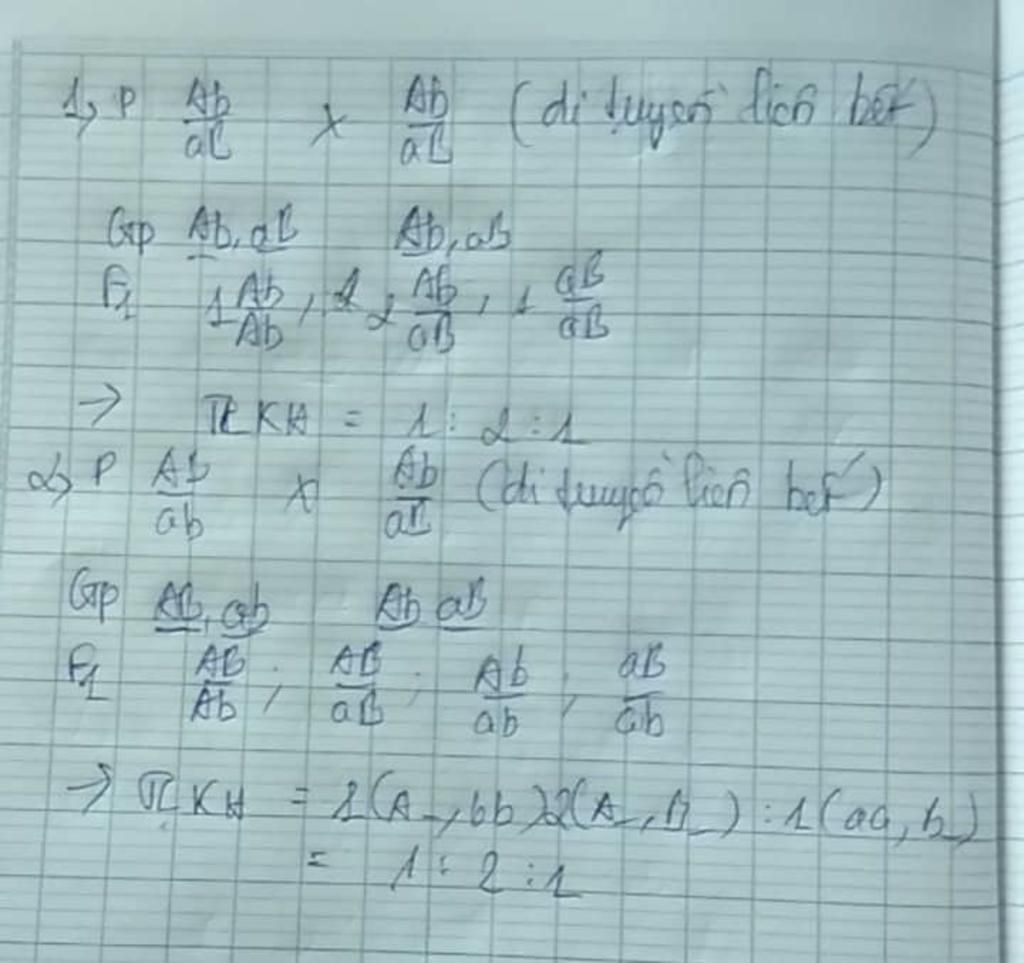 1, P Ab/aB x Ab/aB (di truyền liên kết)
Gp Ab, aB Ab, aB
F1 1 Ab/Ab, 2 Ab/aB, 1 aB/aB
→ TLKH = 1 : 2 : 1
2, P AB/ab x Ab/aB (di truyền liên kết)
Gp AB, ab Ab aB
F1 AB/Ab ; AB/aB ; Ab/ab ; aB/ab
→ TLKH = 1(A_, bb) 2(A_, B_) : 1(aa, b_)
= 1 : 2 : 1